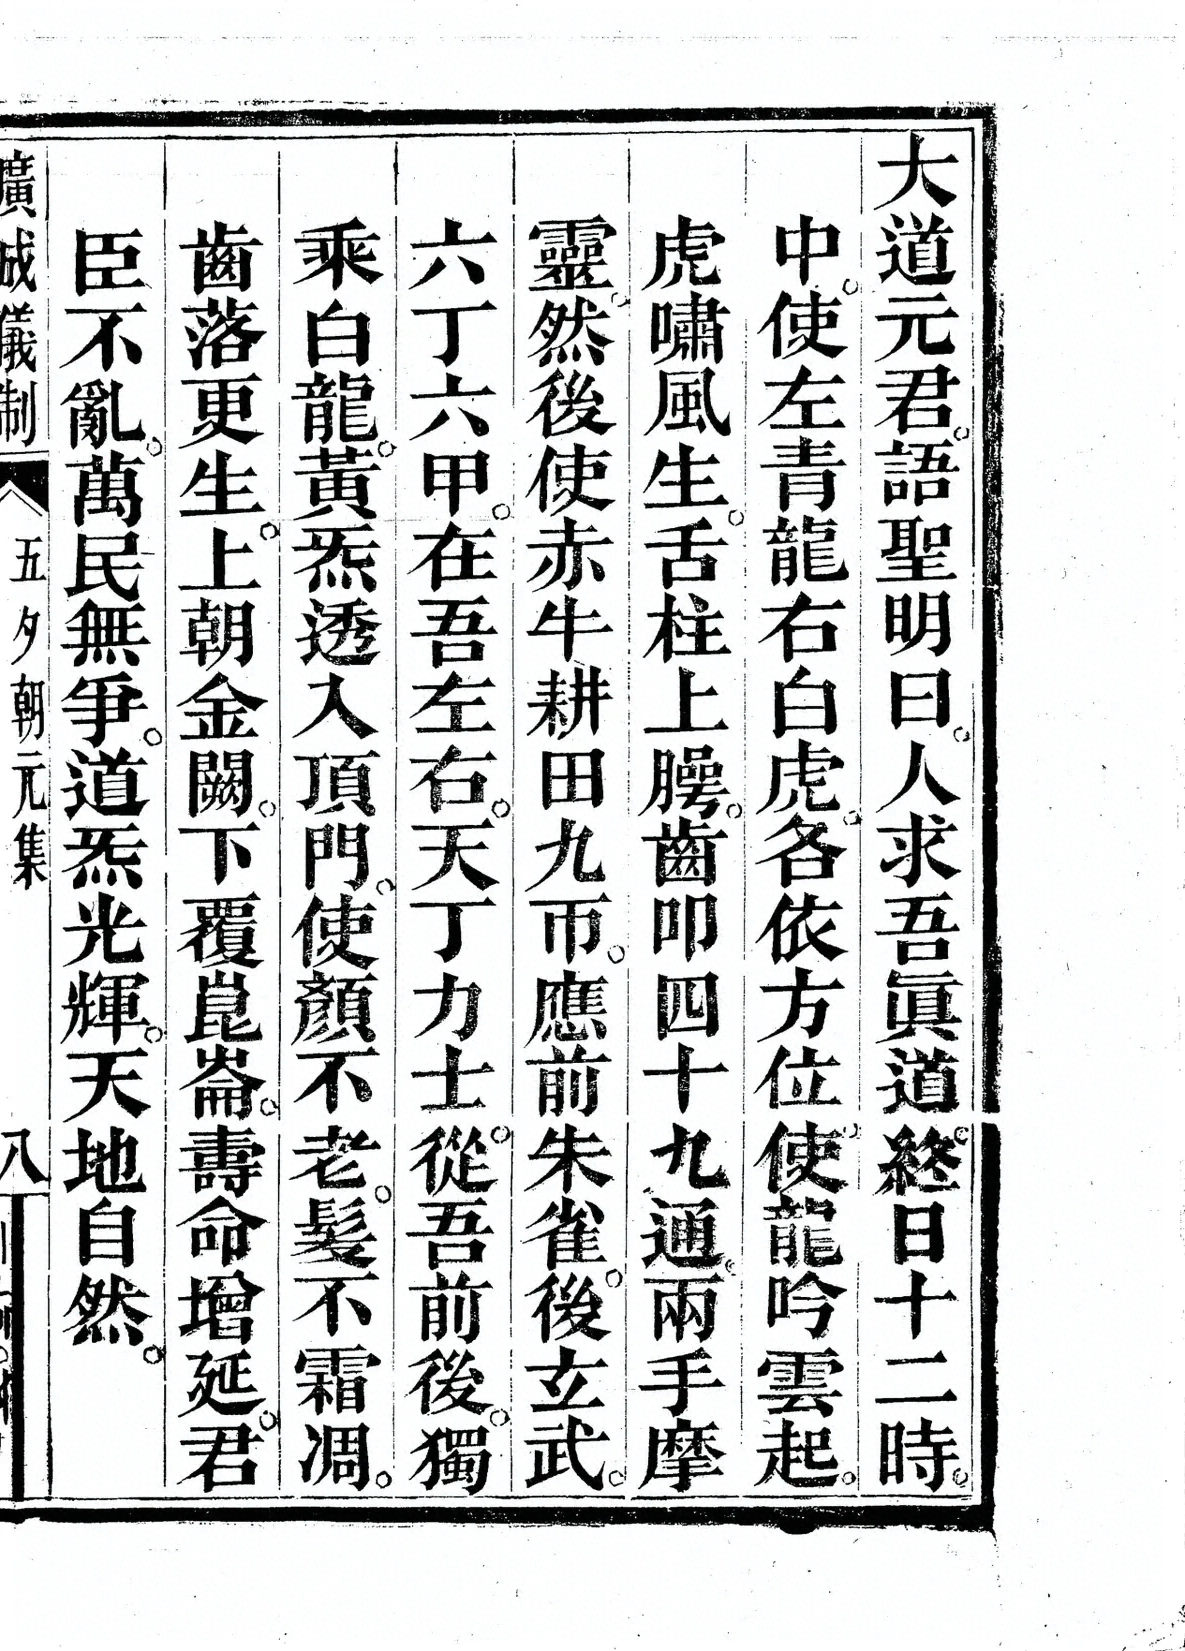 大道元君。語聖明曰。人求吾眞道。終日十二時。
中。使左青龍右白虎。各依方位。使龍吟雲起。
虎嘯風生。舌柱上腭。齒叩四十九通。兩手摩
靈。然後使赤牛耕田九帀。應前朱雀。後玄武。
六丁六甲。在吾左右。天丁力士。從吾前後。獨
乘白龍。黃炁透入頂門。使顏不老。髮不霜凋。
齒落更生。上朝金闕。下覆崑崙。壽命增延。君
臣不亂。萬民無爭。道炁光輝。天地自然。
廣成儀制 五夕朝元集 八